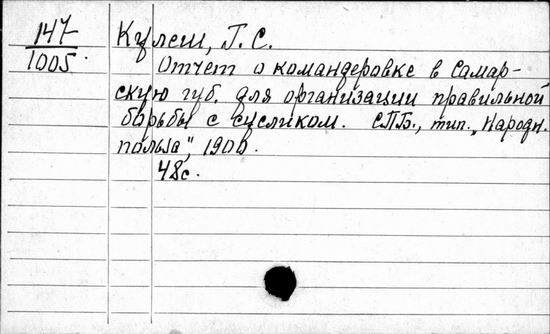 147
1005.
Кулеш, Г. С.
Отчет о командеровке в Самар-
скую губ. для организации правильной
борьбы с сусликом. СПБ., тип. „Народн.
польза", 1900.
48с.